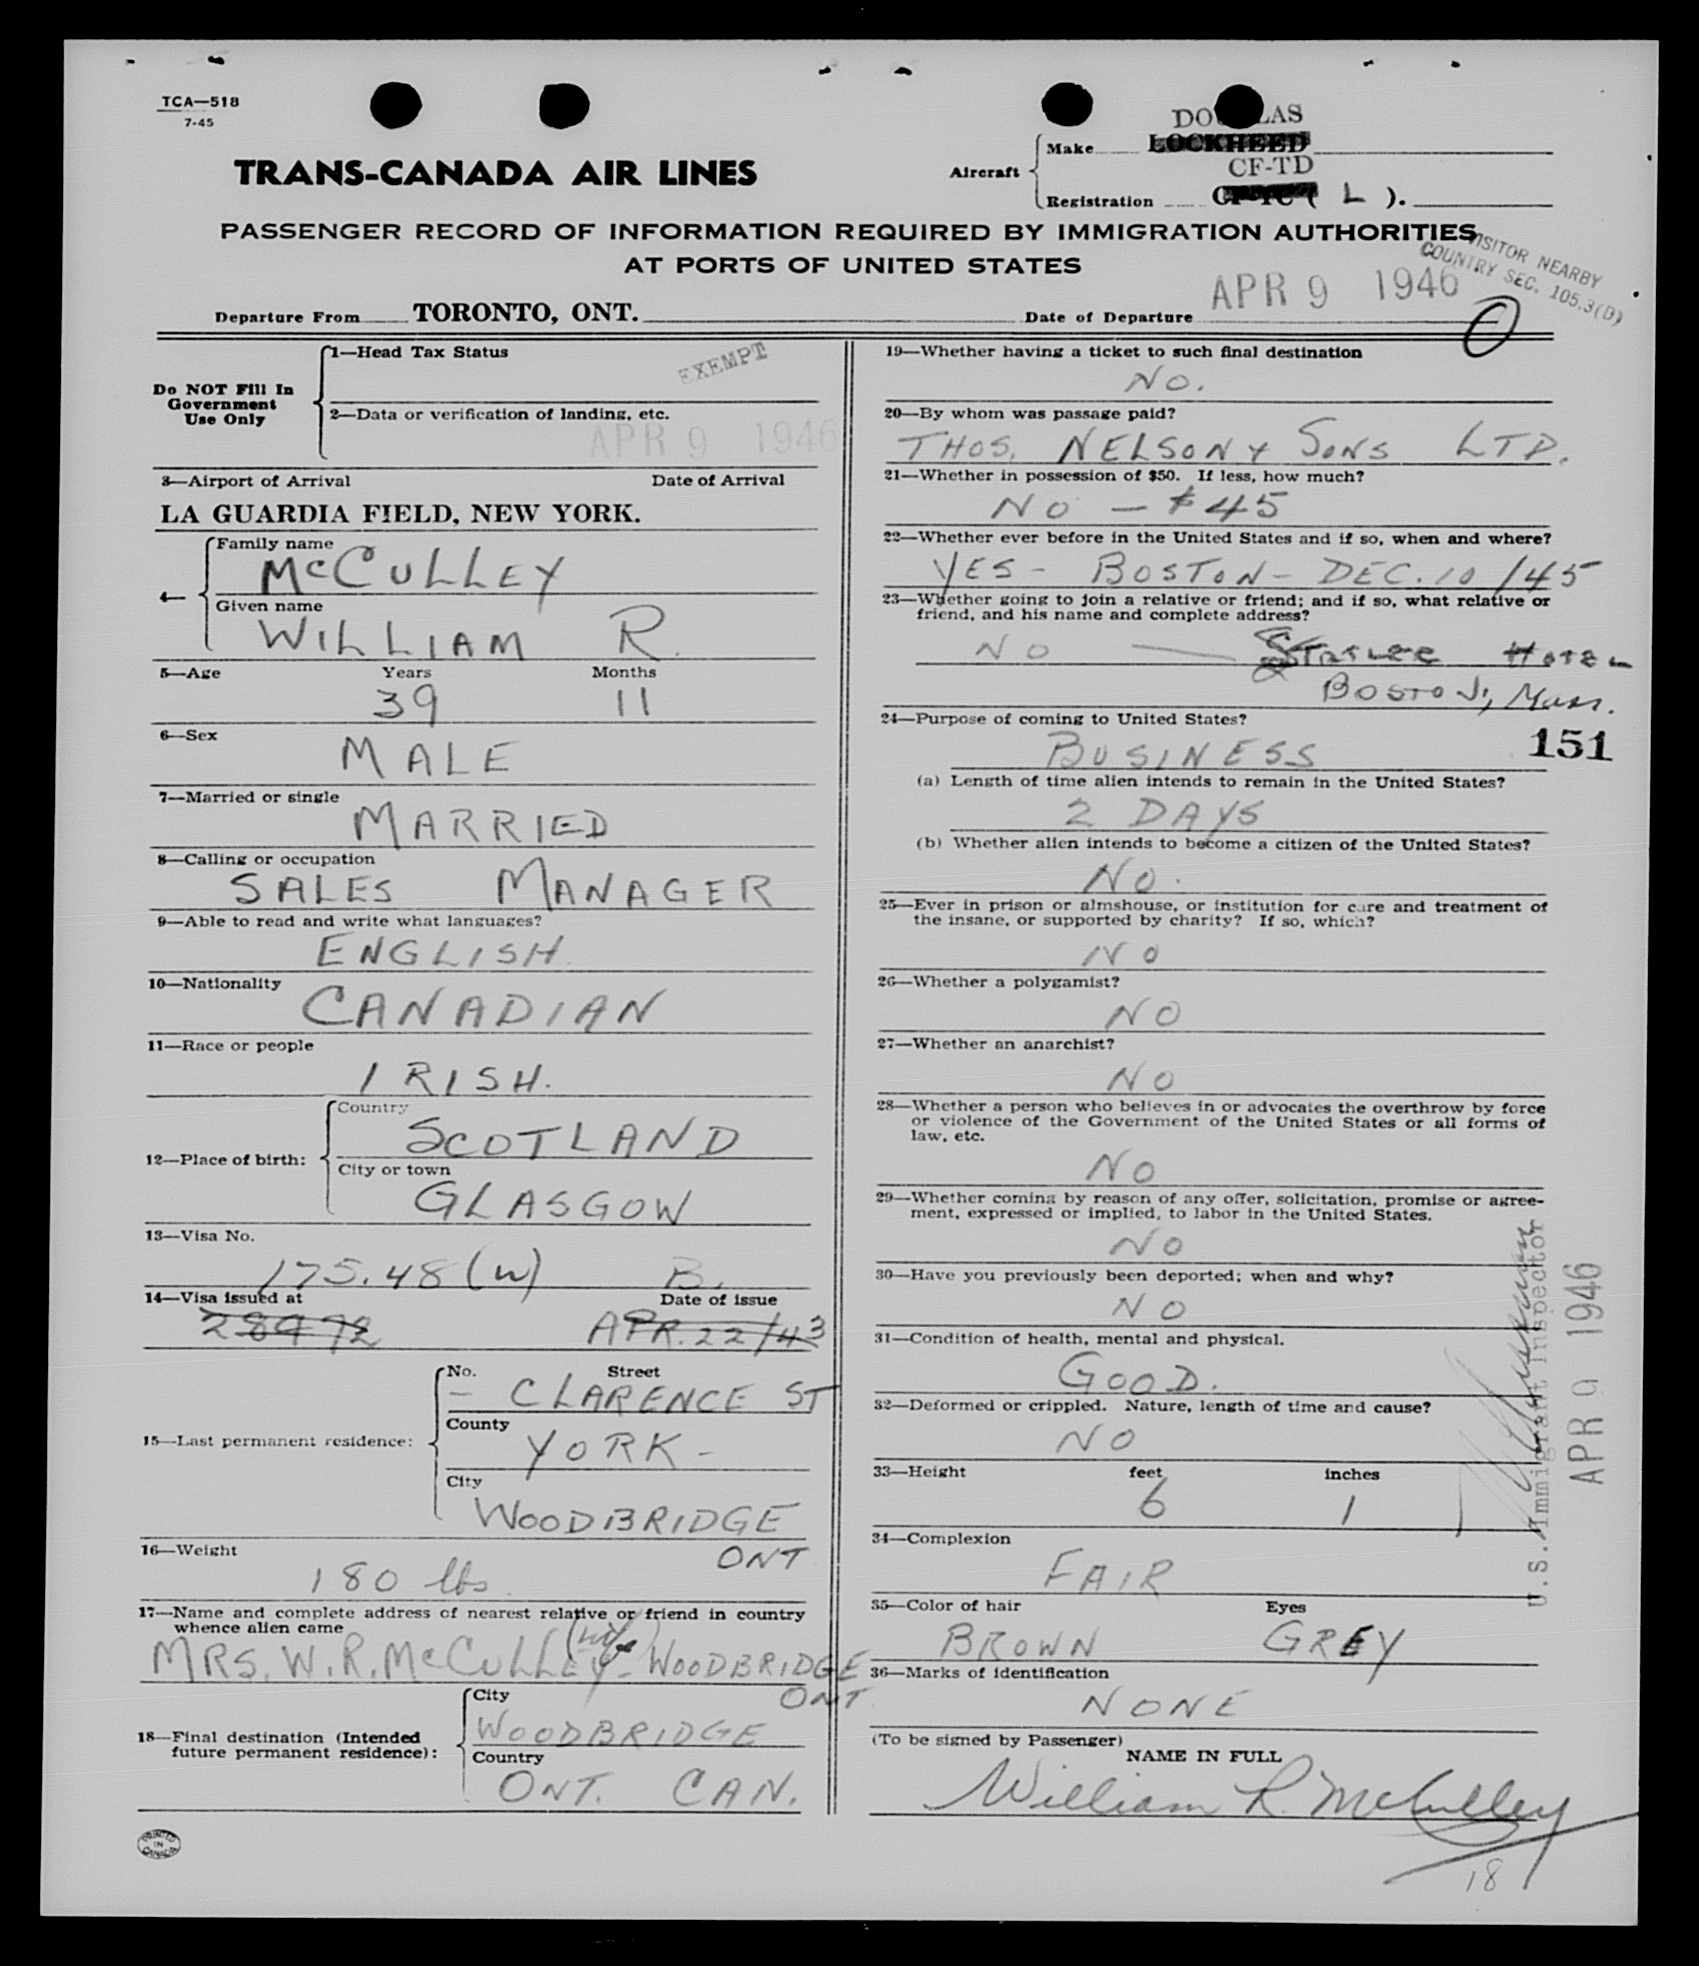 TCA—518
7-45
TRANS-CANADA AIR LINES
Aircraft
Make
DOUGLAS
LOCKHEED
CF-TD
Registration ( L ).
PASSENGER RECORD OF INFORMATION REQUIRED BY IMMIGRATION AUTHORITIES
AT PORTS OF UNITED STATES
VISITOR NEARBY
COUNTRY SEC. 105.3(D)
Departure From TORONTO, ONT.
Date of Departure APR 9 1946
Do NOT Fill In
Government
Use Only
1—Head Tax Status
EXEMPT
2—Data or verification of landing, etc.
APR 9 1946
3—Airport of Arrival Date of Arrival
LA GUARDIA FIELD, NEW YORK.
4—
Family name
McCULLEY
Given name
WILLIAM R.
5—Age Years Months
39 11
6—Sex
MALE
7—Married or single
MARRIED
8—Calling or occupation
SALES MANAGER
9—Able to read and write what languages?
ENGLISH.
10—Nationality
CANADIAN
11—Race or people
IRISH.
12—Place of birth:
Country
SCOTLAND
City or town
GLASGOW
13—Visa No.
175.48 (W) B.
14—Visa issued at Date of issue
28972 APR. 22/43
15—Last permanent residence:
No. Street
— CLARENCE ST
County
YORK -
City
WOODBRIDGE
ONT
16—Weight
180 lbs.
17—Name and complete address of nearest relative or friend in country
whence alien came
MRS. W. R. McCULLEY (wife) - WOODBRIDGE
ONT
18—Final destination (Intended
future permanent residence):
City
WOODBRIDGE
Country
ONT. CAN.
PRINTED
IN
CANADA
19—Whether having a ticket to such final destination
NO.
20—By whom was passage paid?
THOS. NELSON & SONS LTD.
21—Whether in possession of $50. If less, how much?
NO — $45
22—Whether ever before in the United States and if so, when and where?
YES - BOSTON - DEC. 10/45
23—Whether going to join a relative or friend; and if so, what relative or
friend, and his name and complete address?
NO — STATLER HOTEL
BOSTON, Mass.
24—Purpose of coming to United States?
BUSINESS
151
(a) Length of time alien intends to remain in the United States?
2 DAYS
(b) Whether alien intends to become a citizen of the United States?
NO.
25—Ever in prison or almshouse, or institution for care and treatment of
the insane, or supported by charity? If so, which?
NO
26—Whether a polygamist?
NO
27—Whether an anarchist?
NO
28—Whether a person who believes in or advocates the overthrow by force
or violence of the Government of the United States or all forms of
law, etc.
NO
29—Whether coming by reason of any offer, solicitation, promise or agree-
ment, expressed or implied, to labor in the United States.
NO
30—Have you previously been deported; when and why?
NO
31—Condition of health, mental and physical.
GOOD.
32—Deformed or crippled. Nature, length of time and cause?
NO
33—Height feet inches
6 1
34—Complexion
FAIR
35—Color of hair Eyes
BROWN GREY
36—Marks of identification
NONE
(To be signed by Passenger)
NAME IN FULL
William R. McCulley
18
U.S. Immigrant Inspector
APR 9 1946